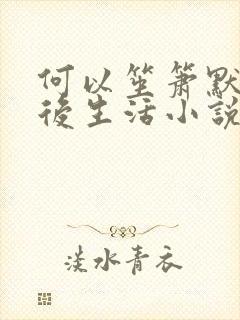 何以笙簫默
後生活小說
淡水青衣